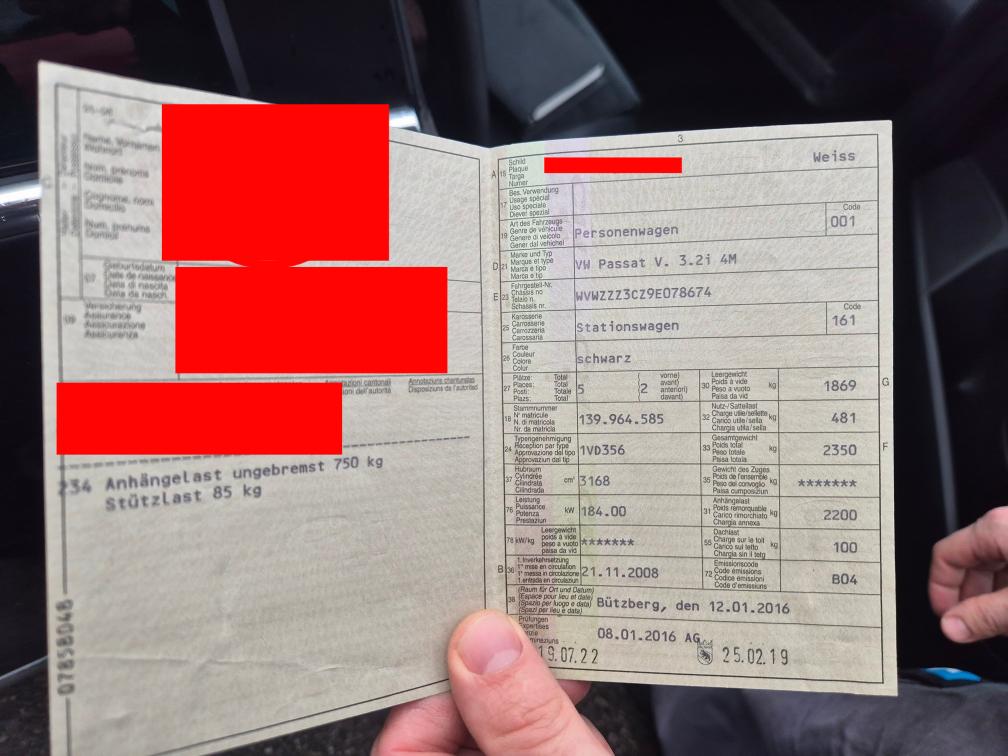 Name, Vornamen
Wohnort
Nom, prénoms
Domicile
Cognome, nomi
Domicilio
Num, prenums
Domicil
07
Geburtsdatum
Date de naissance
Data di nascita
Data da nasch.
09
Versicherung
Assurance
Assicurazione
Assicuranza
Annotaziuns chantunalas
Disposiziuns da l'autoritad
234 Anhängelast ungebremst 750 kg
Stützlast 85 kg
07858048
3
A 15
Schild
Plaque
Targa
Numer
Weiss
17
Bes. Verwendung
Usage spécial
Uso speciale
Diever spezial
19
Art des Fahrzeugs
Genre de véhicule
Genere di veicolo
Gener dal vehichel
Personenwagen
Code
001
D 21
Marke und Typ
Marque et type
Marca e tipo
Marca e tip
VW Passat V. 3.2i 4M
E 23
Fahrgestell-Nr.
Châssis no
Telaio n.
Schassis nr.
WVWZZZ3CZ9E078674
25
Karosserie
Carrosserie
Carrozzeria
Carossaria
Stationswagen
Code
161
26
Farbe
Couleur
Colore
Colur
schwarz
27
Plätze: Total
Places: Total
Posti: Totale
Plazs: Total
5
(2
vorne)
avant)
anteriori)
davant)
30
Leergewicht
Poids à vide
Peso a vuoto
Paisa da vid
kg
1869
G
18
Stammnummer
N° matricule
N. di matricola
Nr. da matricla
139.964.585
32
Nutz-/Sattellast
Charge utile/sellette
Carico utile/sella
Chargia utila/sella
kg
481
24
Typengenehmigung
Réception par type
Approvazione del tipo
Approvaziun dal tip
1VD356
33
Gesamtgewicht
Poids total
Peso totale
Paisa totala
kg
2350
F
37
Hubraum
Cylindrée
Cilindrata
Cilindrada
cm³
3168
35
Gewicht des Zuges
Poids de l'ensemble
Peso del convoglio
Paisa cumposiziun
kg
*******
76
Leistung
Puissance
Potenza
Prestaziun
kW
184.00
31
Anhängelast
Poids remorquable
Carico rimorchiato
Chargia annexa
kg
2200
78 kW/kg
Leergewicht
poids à vide
peso a vuoto
paisa da vid
*******
55
Dachlast
Charge sur le toit
Carico sul tetto
Chargia sin il tetg
kg
100
B 36
1. Inverkehrsetzung
1re mise en circulation
1a messa in circolazione
1. entrada en circulaziun
21.11.2008
72
Emissionscode
Code émissions
Codice emissioni
Code d'emissiuns
B04
38
(Raum für Ort und Datum)
(Espace pour lieu et date)
(Spazio per luogo e data)
(Spazi per lieu e data)
Bützberg, den 12.01.2016
Prüfungen
Expertises
08.01.2016 AG
19.07.22
25.02.19